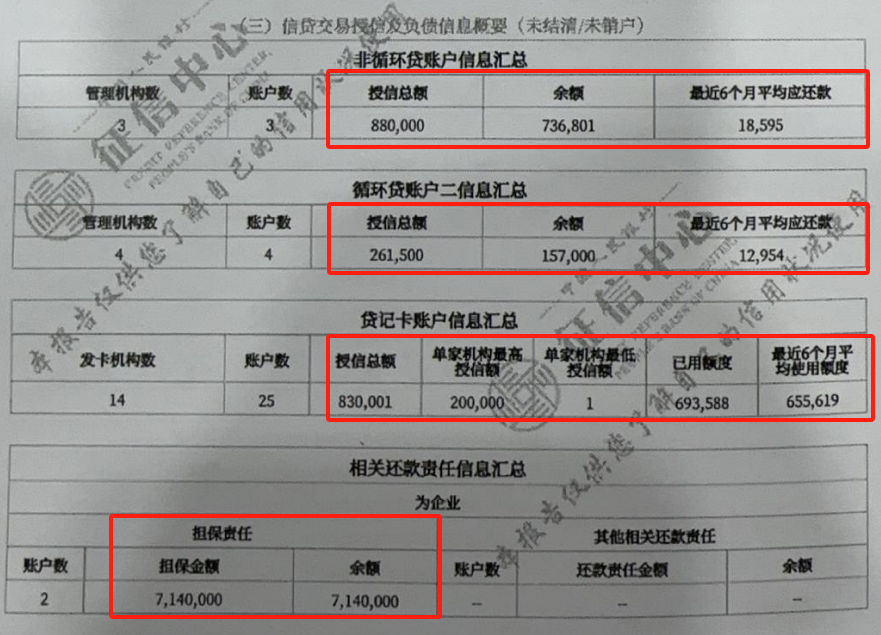 （三）信贷交易授信及负债信息概要（未结清/未销户）
非循环贷账户信息汇总
管理机构数 账户数 授信总额 余额 最近6个月平均应还款
3 3 880,000 736,801 18,595
循环贷账户二信息汇总
管理机构数 账户数 授信总额 余额 最近6个月平均应还款
4 4 261,500 157,000 12,954
贷记卡账户信息汇总
发卡机构数 账户数 授信总额 单家机构最高授信额 单家机构最低授信额 已用额度 最近6个月平均使用额度
14 25 830,001 200,000 1 693,588 655,619
相关还款责任信息汇总
为企业
担保责任 其他相关还款责任
账户数 担保金额 余额 账户数 还款责任金额 余额
2 7,140,000 7,140,000 -- -- --
中国人民银行
征信中心
CREDIT REFERENCE CENTER,
PEOPLE'S BANK OF CHINA
本报告仅供您了解自己的信用状况使用
中国人民银行
征信中心
CREDIT REFERENCE CENTER,
PEOPLE'S BANK OF CHINA
本报告仅供您了解自己的信用状况使用